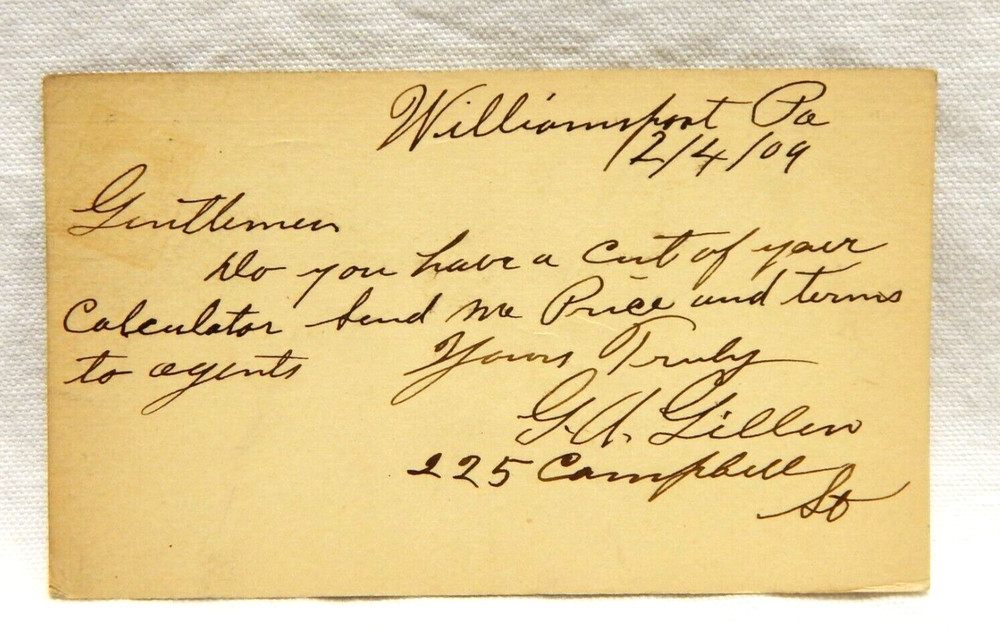 Williamsport Pa
12/4/09
Gentlemen
Do you have a Cut of your
Calculator Send me Price and terms
to agents Yours Truly
G. A. Gillen
225 Campbell
St